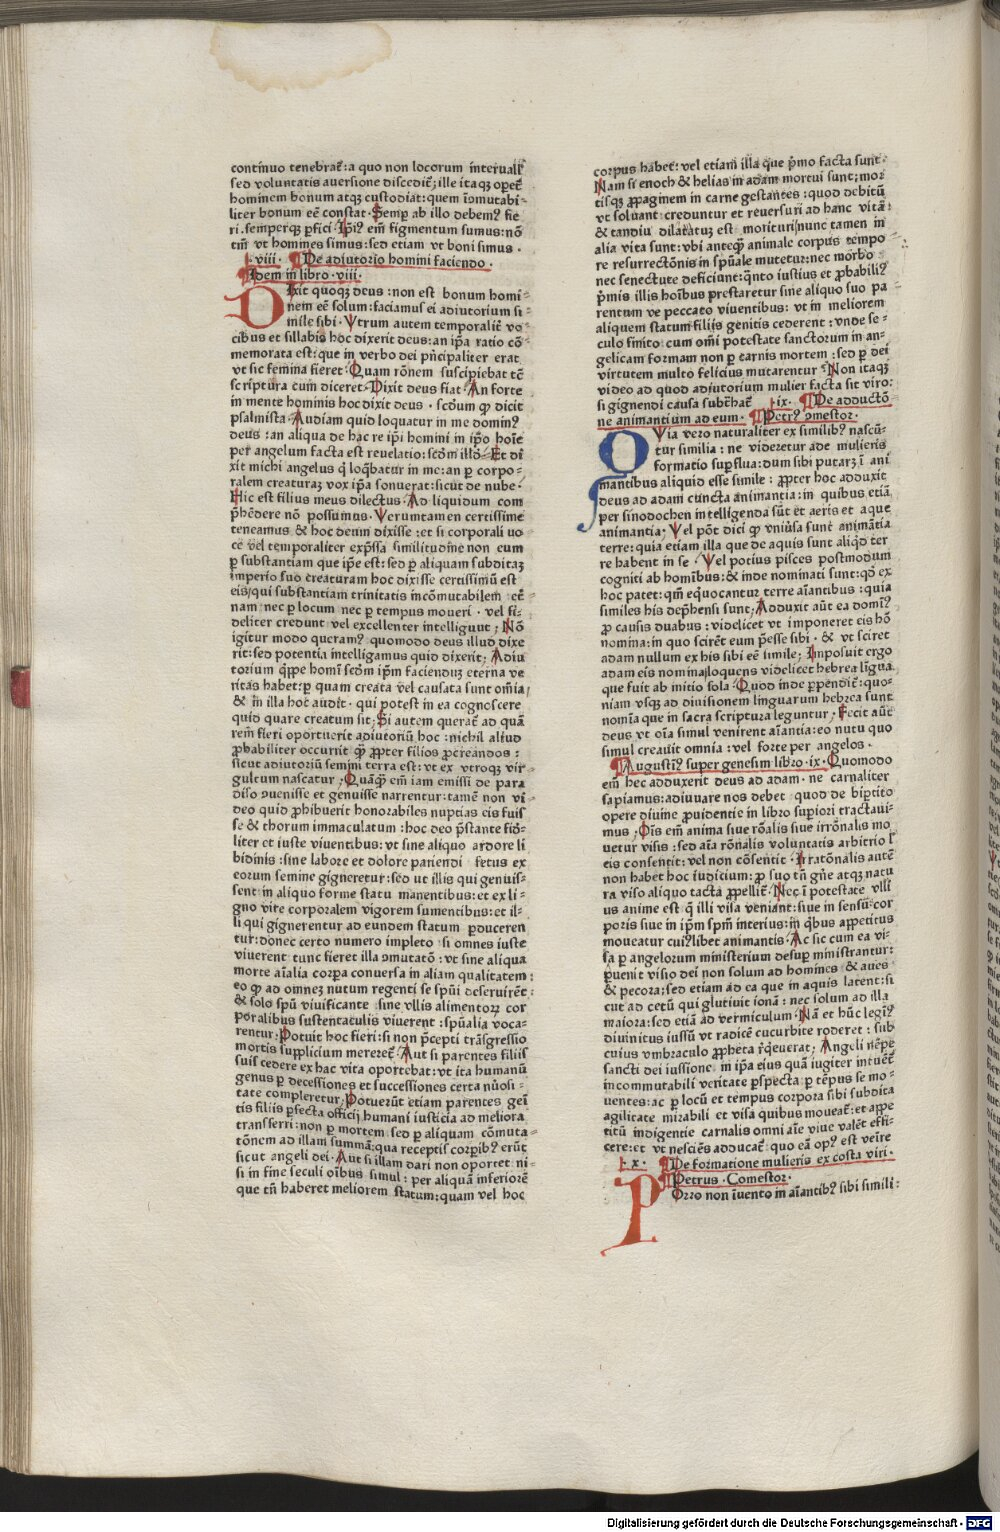 continuo tenebrat᷑:a quo non locorum interuall'
sed voluntatis auersione discedit᷑;ille itaqꝫ opet᷑
hominem bonum atqꝫ custodiat:quem īꝯmutabi-
liter bonum eē constat·Semꝑ ab illo debemꝰ fie
ri·semperqꝫ ꝑfici·Ipīꝰ em̄ figmentum sumus:nō
tm̄ vt homines simus:sed etiam vt boni simus·
·viii· De adiutorio homini faciendo·
Idem in libro·viii·
Dixit quoqꝫ deus:non est bonum homi-
nem eē solum:faciamus ei adiutorium si
mile sibi·Vtrum autem temporalit᷑ vo
cibus et sillabis hoc dixerit deus:an ip̄a ratio cō-
memorata est:que in verbo dei pn̄cipaliter erat
vt sic femina fieret·Quam rōnem suscipiebat et᷑
scriptura cum diceret·Dixit deus fiat·An forte
in mente hominis hoc dixit deus·scdm ꝙ dicit
psalmista·Audiam quid loquatur in me dominꝰ
deus:an aliqua de hac re ip̄i homini in ip̄o hoīe
per angelum facta est reuelatio:scdm illd·Et di
xit michi angelus q̇ loq̄batur in me:an ꝑ corpo-
ralem creaturaꝫ vox ip̄a sonuerat:sicut de nube·
Hic est filius meus dilectus·Ad liquidum com
p̄hēdere nō possumus·Verumtamen certissime
teneamus & hoc deum dixisse:et si corporali uo-
ce vel temporaliter exp̄ssa similitudine non eum
ꝑ substantiam que ip̄e est:sed ꝑ aliquam subditaꝫ
imperio suo creaturam hoc dixisse certissimū est
eis/qui substantiam trinitatis incōmutabilem cē-
nam nec ꝑ locum nec ꝑ tempus moueri·vel fi-
deliter credunt vel excellenter intelligunt;Nō
igitur modo queramꝰ quomodo deus illud dixe
rit:sed potentia intelligamus quid dixerit;Adiu
torium q̇ppe homī scdm ip̄m faciendū eterna ve
ritas habet:ꝑ quam creata vel causata sunt om̄ia
& in illa hoc audit·qui potest in ea cognoscere
quid quare creatum sit;Si autem querat᷑ ad quā
rem fieri oportuerit adiutoriū hoc:nichil aliud
ꝓbabiliter occurrit qꝫ ꝓpter filios ꝓcreandos:
sicut adiutoriū semini terra est:vt ex vtroqꝫ vir-
gultum nascatur;Quāqꝫ em̄ iam emissi de para
diso ꝯuenisse et genuisse narrentur:tamē non vi-
deo quid ꝓhibuerit honorabiles nuptias eis fuis
se & thorum immaculatum:hoc deo p̄stante fid-
liter et iuste viuentibus:vt sine aliquo ardore li
bidinis:sine labore et dolore pariendi fetus ex
eorum semine gigneretur:sed ut illis qui genuis-
sent in aliquo forme statu manentibus:et ex li-
gno vite corporalem vigorem sumentibus:et il-
li qui gignerentur ad eundem statum ꝑducerent
tur:donec certo numero impleto si omnes iuste
viuerent tunc fieret illa ꝯmutatō:vt sine aliqua
morte aīalia corꝑa conuersa in aliam qualitatem:
eo ꝙ ad omneꝫ nutum regenti se spūi deseruiret᷑:
& solo spū viuificante sine vllis alimentoꝝ cor
poralibus sustentaculis viuerent:spūalia voca-
rentur·Potuit hoc fieri:si non p̄cepti trāsgressio
mortis supplicium mereret᷑·Aut si parentes filiis
suis cedere ex hac vita oportebat:vt ita humanū
genus ꝑ decessiones et successiones certa nūosi-
tate compleretur;Potuerūt etiam parentes geni
tis filiis ꝑfecta officij humani iusticia ad meliora
transferri:non ꝑ mortem sed ꝑ aliquam cōmuta-
tōnem ad illam summā:qua receptis corꝑibꝰ erūt
sicut angeli dei·Aut si illam dari non oportet ni-
si in fine seculi oībus simul:per aliquā inferiorē
que tn̄ haberet meliorem statum:quam vel hoc
corpus habet:vel etiam illa que pⁱmo facta sunt·
Nam si enoch & helias in adam mortui sunt;mor
tisqꝫ ꝓpaginem in carne gestantes:quod debitū
vt soluant:creduntur et reuersuri ad hanc vitā:
& tandiu dilaturꝫ est morituri/nunc tamen in
alia vita sunt:vbi anteqꝫ animale corpus tempo
re resurrectōnis in spūale mutetur:nec morbo
nec senectute deficiunt:q̄nto iustius et ꝓbabiliꝰ
pⁱmis illis hoībus prestaretur sine aliquo suo pa
rentum ve peccato viuentibus:vt in meliorem
aliquem statum filiis genitis cederent:vnde se-
culo finito cum omī potestate sanctorum in an-
gelicam formam non ꝑ carnis mortem:sed ꝑ dei
virtutem multo felicius mutarentur·Non itaqꝫ
video ad quod adiutorium mulier facta sit viro:
si gignendi causa subt̄hat᷑ ·ix· De adductō
ne animantium ad eum· Petrꝰ ꝯmestor·
Quia vero naturaliter ex similibꝰ nascū-
tur similia:ne videretur ade mulieris
formatio suꝑflua:dum sibi putarꝫ ī ani
mantibus aliquid esse simile:ꝓpter hoc adduxit
deus ad adam cuncta animantia:in quibus etiā
per sinodochen intelligenda sūt et aeris et aque
animantia·Vel pōt dici ꝙ vniūsa sunt animātia
terre:quia etiam illa que de aquis sunt aliqd ter
re habent in se·Vel potius pisces postmodum
cogniti ab homībus:& inde nominati sunt:qd ex
hoc patet:qm̄ eq̇uocantur terre aīantibus:quia
similes his dep̄hensi sunt;Adduxit aūt ea domīꝰ
ꝓ causis duabus:videlicet vt imponeret eis hō
nomina:in quo scirēt eum p̄esse sibi·& vt sciret
adam nullum ex his sibi eē simile;Imposuit ergo
adam eis nomina/loquens videlicet hebrea lingua
que fuit ab initio sola·Quod inde ꝑpendit᷑:quo-
niam vsqꝫ ad diuisionem linguarum hebrea sunt
nomīa que in sacra scriptura leguntur·Fecit aūt
deus vt oīa simul venirent aīantia:eo nutu quo
simul creauit omnia:vel forte per angelos·
Augustīꝰ super genesim libro·ix·Quomodo
em̄ hec adduxerit deus ad adam·ne carnaliter
sapiamus:adiuuare nos debet quod de biptito
opere diuine ꝓuidentie in libro suꝑiori tractaui-
mus;Oīs em̄ anima siue rōalis siue irrōnalis mo
uetur visis:sed aīa rōnalis voluntatis arbitrio l'
eis consentit:vel non cōsentit·Irratōnalis autē
non habet hoc iudicium:ꝓ suo tn̄ gn̄e atqꝫ natu
ra viso aliquo tacta ꝓpellit᷑·Nec ī potestate vlli
us anime est q̄ illi visa veniant:siue in sensū cor
poris siue in ip̄m spm̄ interius:in q̇bus appetitus
moueatur cuiꝰlibet animantis·Ac sic cum ea vi-
sa ꝑ angelorum ministerium desuꝑ ministrantur:
ꝑuenit visio dei non solum ad homines & aues
& pecora;sed etiam ad ea que in aquis latent:si
cut ad cetū qui glutiuit ionā:nec solum ad illa
maiora:sed etiā ad vermiculum·Nā et hūc legīꝰ
diuinitus iussū vt radicē cucurbite roderet:sub
cuius vmbraculo ꝓpheta rⁱqͥeuerat;Angeli nēpe
sancti dei iussione in ip̄a eius quā iugiter intuēt᷑
incommutabili veritate ꝑspecta ꝑ tēpus se mo-
uentes:ac ꝑ locū et tempus corpora sibi subdita
agilitate mirabili et visa quibus moueat᷑:et appe
titū indigentie carnalis omni aīe viue valēt effi-
cere:et vt nesciēs adducat᷑ quo eā opꝰ est veīre
·x· De formatione mulieris ex costa viri·
Petrus·Comestor·
Porro non īuento in aīantibꝰ sibi simili:
Digitalisierung gefördert durch die Deutsche Forschungsgemeinschaft · DFG